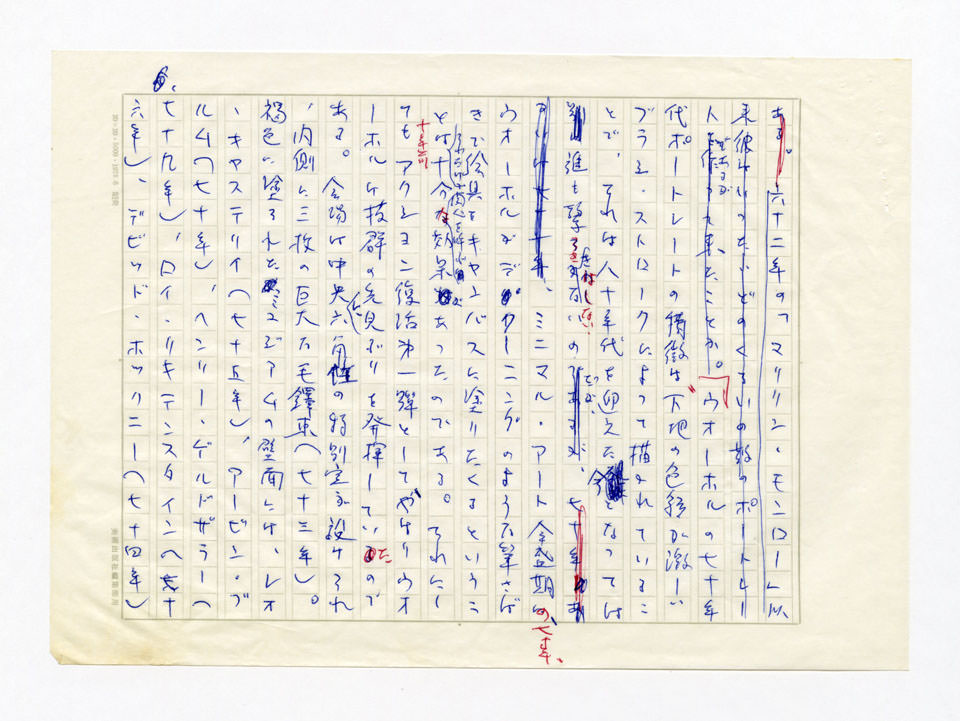 ある。六十二年の「マリリン・モンロー」以
来彼はいったいどのくらいの数のポートレー
ト
を作って来たことか。「ウォーホルの七十年
代ポートレートの特徴は"下地の色彩が激しい
ブラシ・ストロークによって描かれているこ
とで、それは八十年代を迎えた今となっては
進も撃
ミニマル・アート全盛期の
七年、
ウォーホルがデ・クーニングのような筆さば
きで絵具をキャンバスに塗りたくるというこ
とは十分な効果があったのである。それにし
十年前
てもアクション復活第一弾としてやはりウォ
ーホルは抜群の先見ぶりを発揮していたので
ある。会場は中央六角性の特別室が設けられ
、内側に三枚の巨大な毛鐸東(七十三年)。
褐色に塗られたミュージアムの壁面には、レオ
・キャステリイ(七十五年)、アービン・ブ
ルム(七十年)、ヘンリー・ゲルドザラー(
七十九年)、ロイ・リキテンスタイン(七十
六年)、デビッド・ホックニー(七十四年)